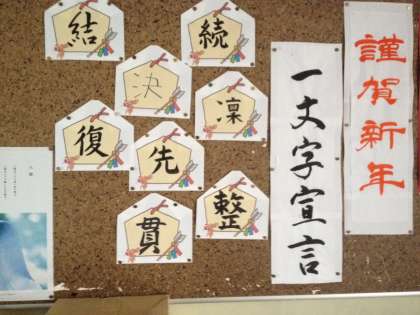 謹賀新年
一文字宣言
続
凜
整
決
先
貫
結
復